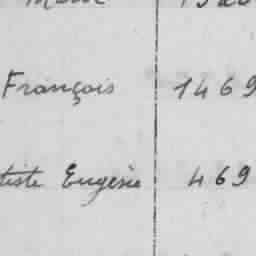 François 1469
tiste Eugénie 469